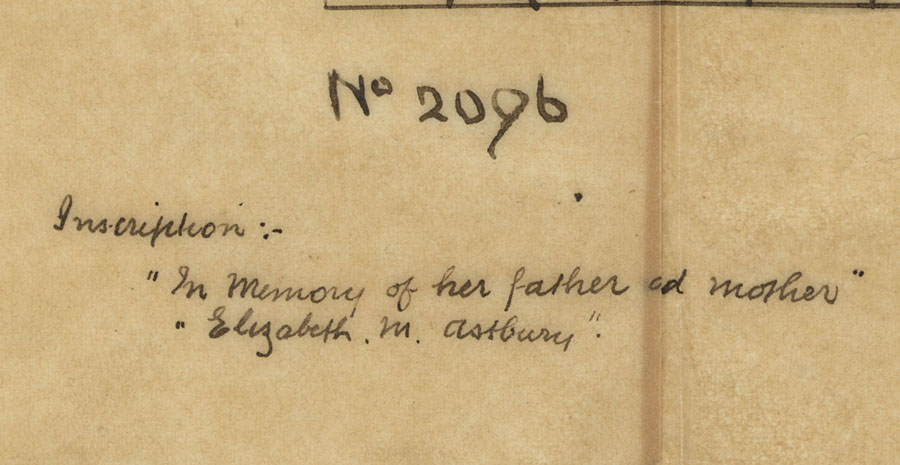 No 2096
Inscription :-
" In Memory of her father ad mother "
" Elizabeth. M. Astbury ".